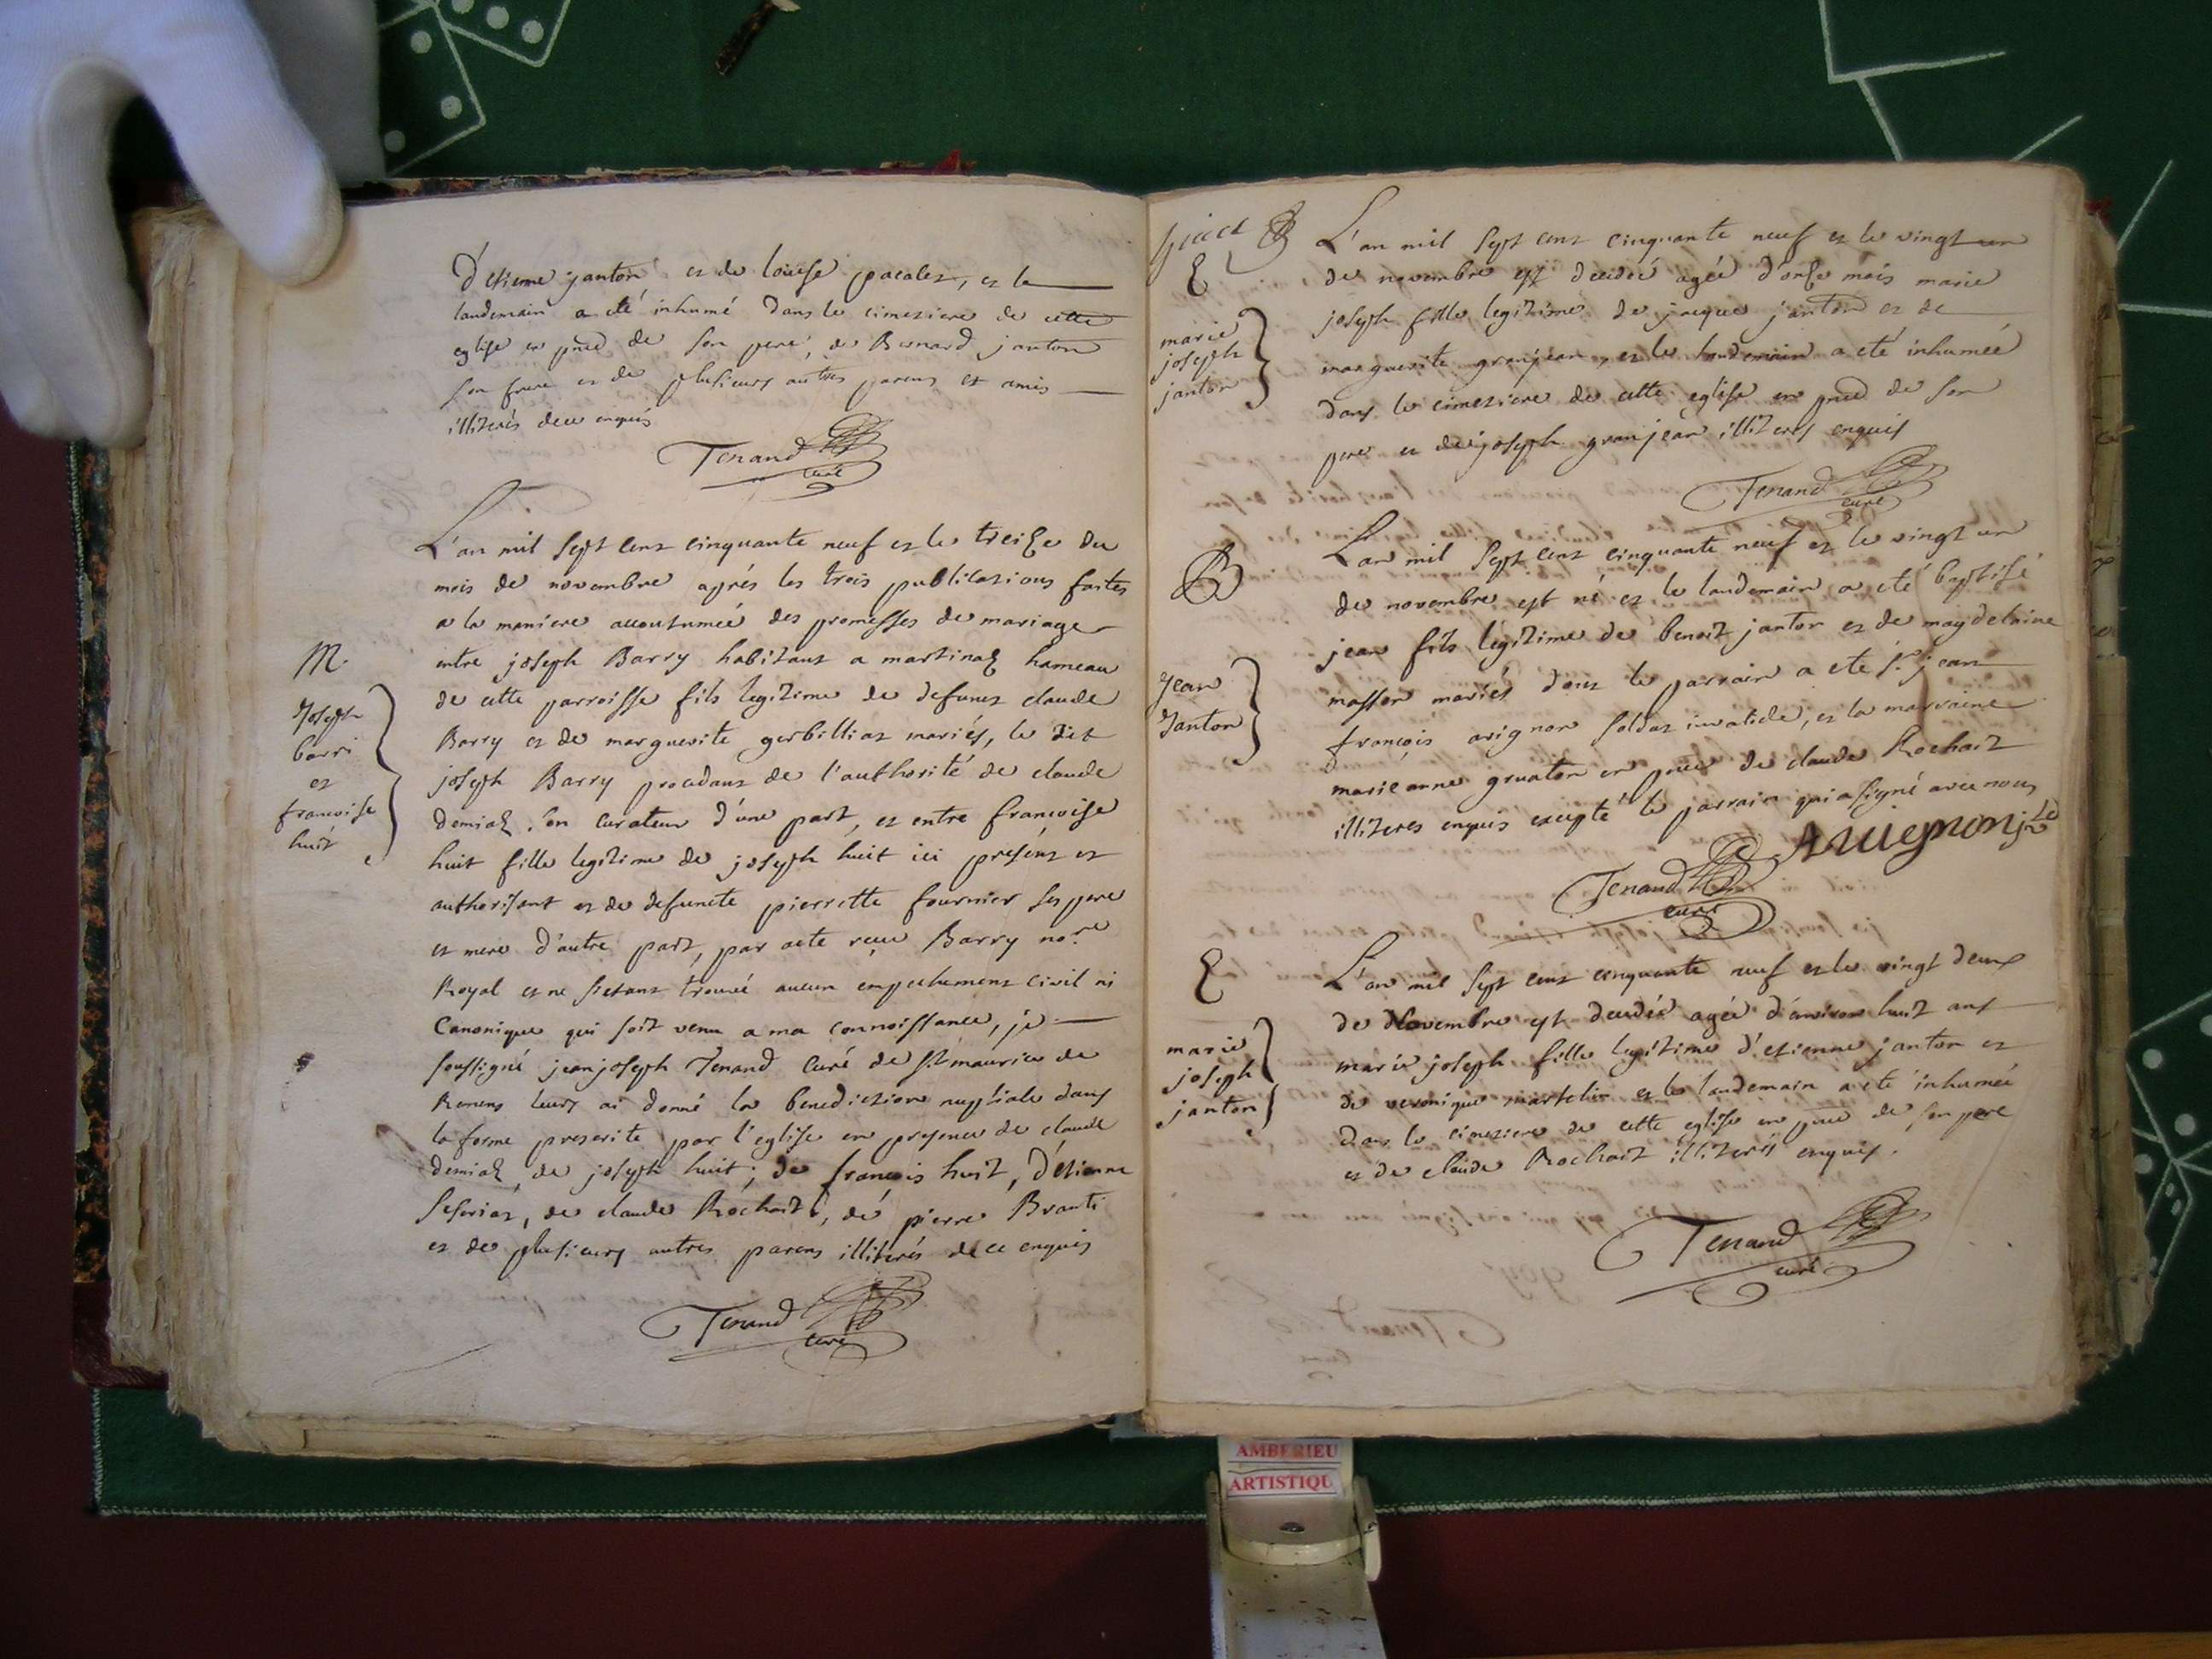 D'etienne janton et de louise pacalet, et le
landemain a eté inhumé dans le cimeziere de cette
eglise en pned de son pere, de Bernard janton
son frere et de plusieurs autres parens et amis
illiterés dece enquis
Tenand
curé
L'an mil sept cent cinquante neuf et le treize du
mois de novembre aprés les trois publications faites
a la maniere accoutumée des promesses de mariage
entre joseph Barry habitant a martinaz hameau
de cette parroisse fils legitime de defunct claude
Barry et de marguerite gerbilliat mariés, le dit
joseph Barry procedant de l'authorité de claude
demiaz son curateur d'une part, et entre françoise
huit fille legitime de joseph huit ici present et
authorisant et de defuncte pierrette fournier ses pere
et mere d'autre part, par acte reçu Barry no.re
Royal et ne s'etant trouvé aucun empechement civil ni
Canonique qui soit venu a ma connoissance, je
soussigné jeanjoseph Tenand curé de St maurice de
Remens leurs ai donné la benediction nuptiale dans
la forme prescrite par l'eglise en presence de claude
demiaz, de joseph huit; de françois huit, d'etienne
, de claude Rochait, de pierre Branti
et de plusieurs autres parens illiterés de ce enquis
Tenand
curé
M.
Joseph
barri
et
francoise
huit
L'an mil sept cent cinquante neuf et le vingt un
de novembre est decedeé agée d'onze mois marie
joseph fille legitime de jacque janton et de
marguerite granjean, et le landemain a eté inhumée
dans le cimeziere de cette eglise en pned de son
pere et de joseph granjean illiterés enquis
Tenand
curé
E
marie
joseph
janton
B
Jean
Janton
L'an mil sept cent cinquante neuf et le vingt un
de novembre est né et le landemain a eté baptisé
jean fils legitime de benoit janton et de magdelaine
masson mariés dont le parrain a eté s.r jean
françois avignon soldat invalide, et la marraine
marieanne gruaton en pnce de claude Rochait
illiteres enquis excepté le parrain qui a signé avec nous
Avuignon
Tenand
curé
E
marie
joseph
janton
L'an mil sept cent cinquante neuf et le vingt deux
de Novembre est decedée agée d'environ huit ans
marie joseph fille legitime d'etienne janton et
de veronique martelin et le landemain a eté inhumée
dans le cimeziere de cette eglise en pnce de son pere
et de claude Rochait illiterés enquis.
Tenand
curé
AMBERIEU
ARTISTIQU